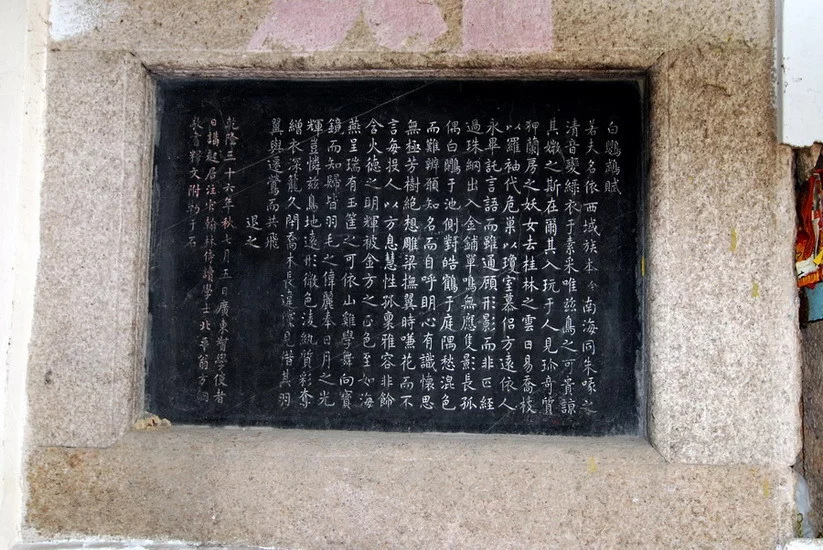 白鸚鵡賦
若夫名依西域族本今南海同朱喙之
清音變綠衣于素采唯兹鳥之可貴諒
其嫩之斯在爾其入玩于人見珍奇質
狎蘭房之妖女去桂林之雲日易喬枝
以羅袖代危巢以瓊室慕侶方遠依人
永畢託言語而雖通顧形影而非匹經
過珠網出入金鋪單鳴無應隻影長孤
偶白鷴于池側對皓鶴于庭隅愁混色
而難辨願知名而自呼明心有識懷思
無極芳樹絶想雕梁撫翼時嗛花而不
言每投人以方息慧性孤稟雅容非飾
含火德之明輝被金方之正色至如海
燕呈瑞有玉筐之可依山雞學舞向寶
鏡而知歸皆羽毛之偉麗奉日月之光
輝豈憐兹鳥地遠形微色淩紈質彩奪
繒衣深籠久閉喬木長違儻見借其羽
翼與遷鶯而共飛
退之
乾隆三十六年秋七月五日廣東督學使者
日講起居注官翰林侍讀學士北平翁方綱
敬書釋文附勒于石